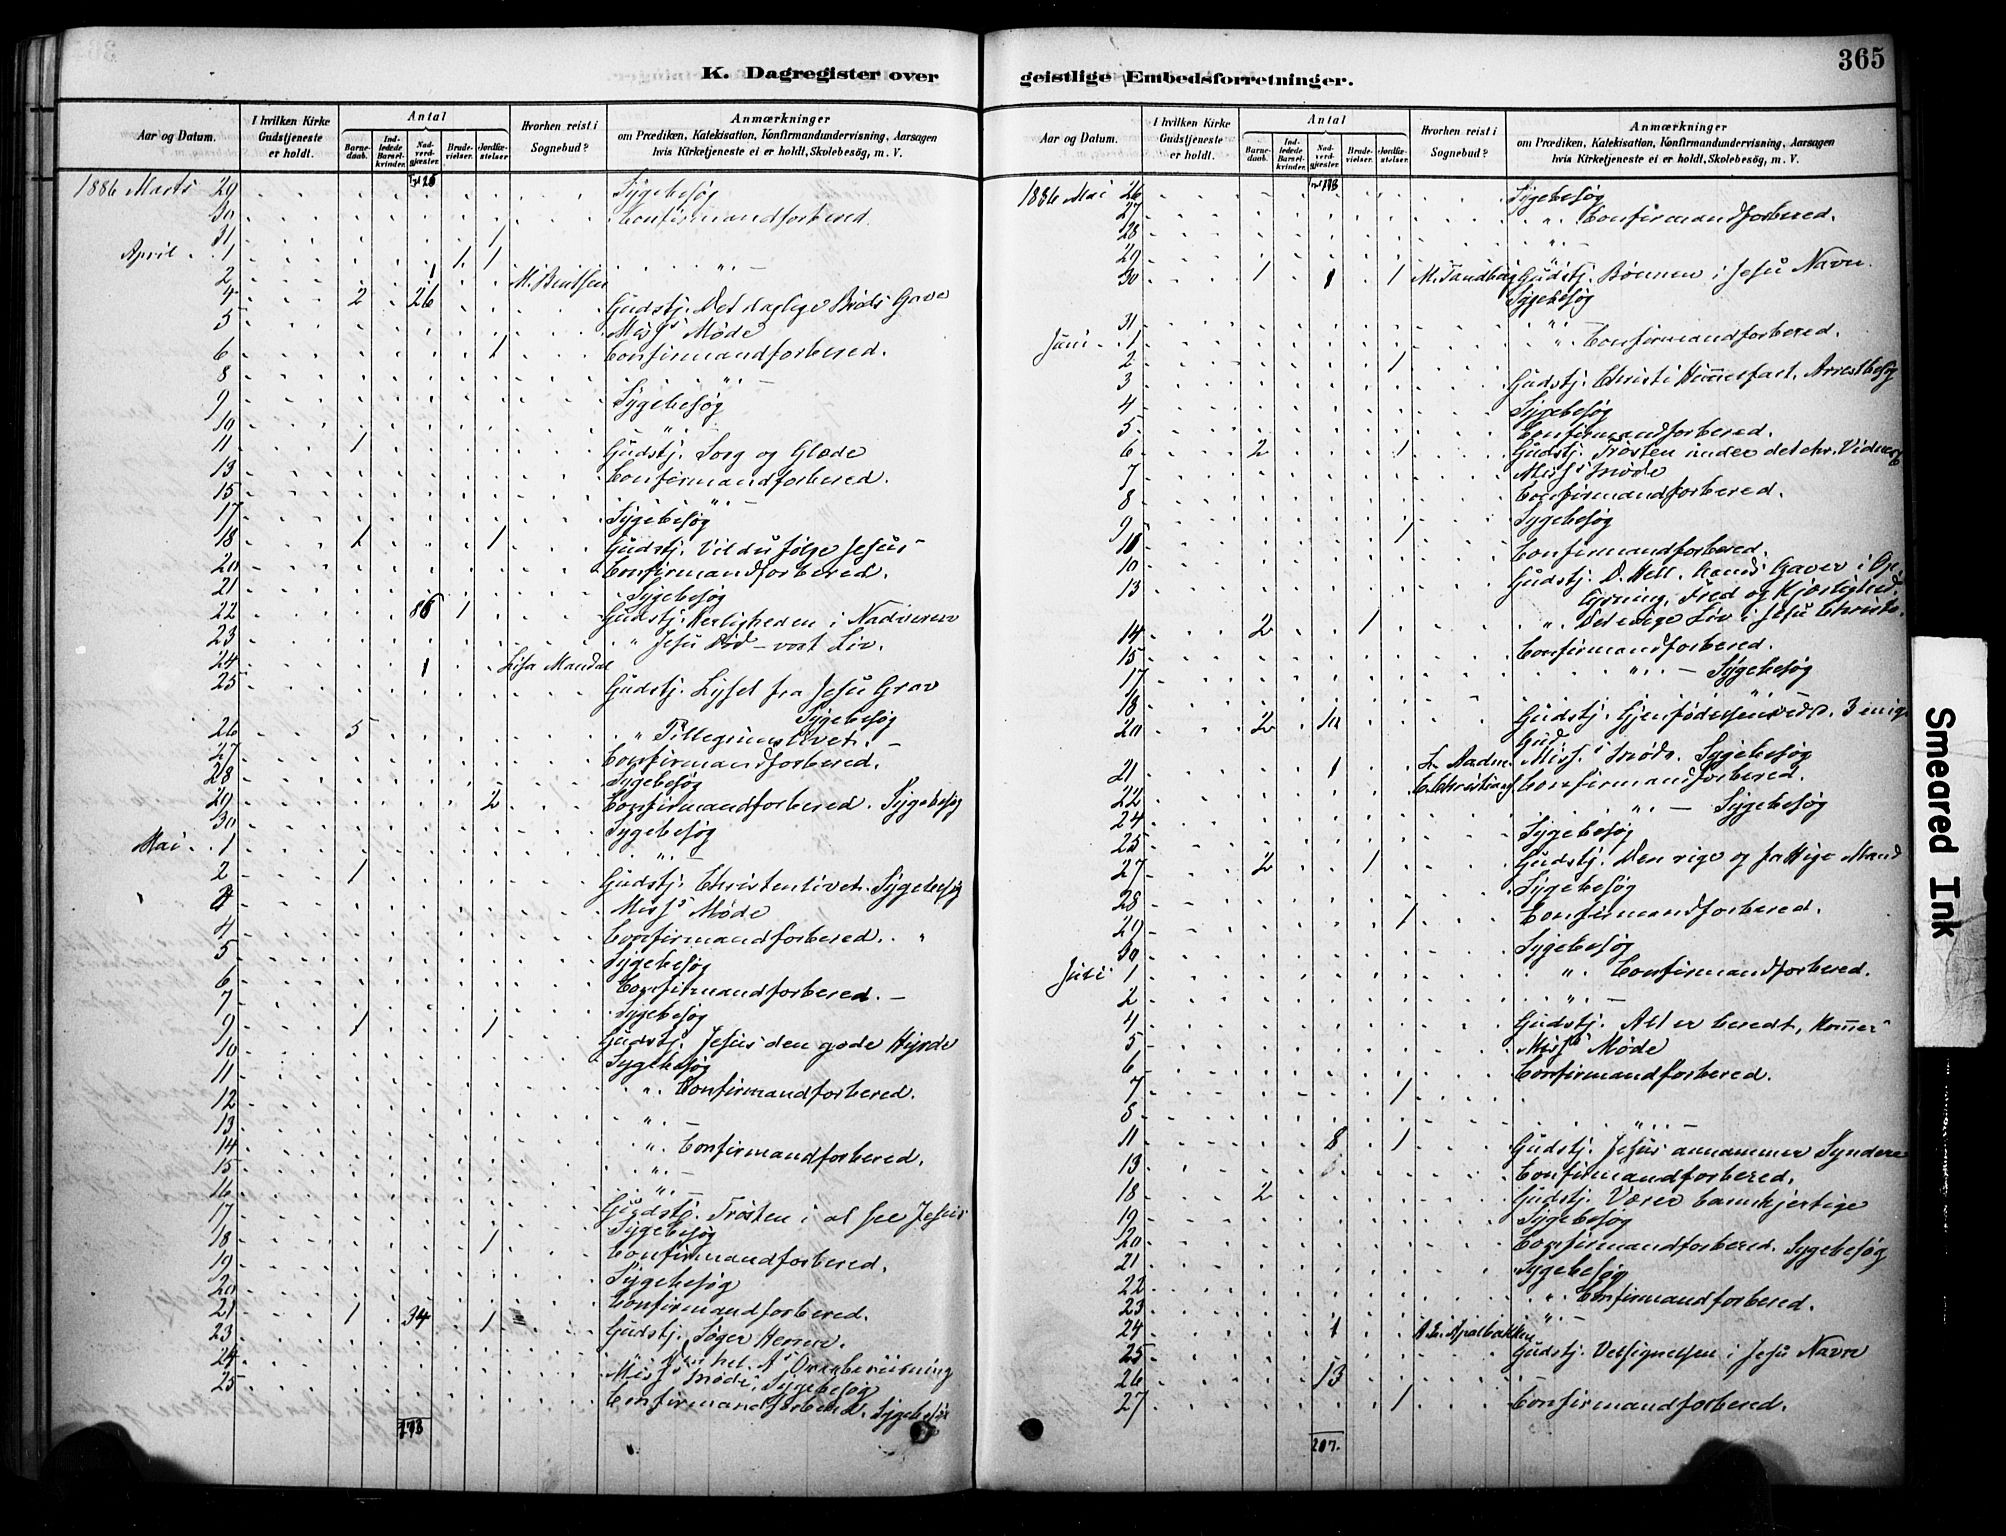 365
K. Dagregister over
geistlige Embedsforretninger.
Aar og Datum.
I hvilken Kirke Gudstjeneste er holdt.
Antal
Barnedaab.
Indledede Barselkvinder.
Nadverdgjæster.
Brudevielser.
Jordfæstelser.
Hvorhen reist i Sognebud?
Anmærkninger
om Prædiken, Katekisation, Konfirmandundervisning, Aarsagen
hvis Kirketjeneste ei er holdt, Skolebesög, m. V.
1886 Marts 29 Sygebesøg
30 Confirmandforbered.
31 1
April 1 1 1 " —
2 1 M. Bentsen
4 2 26 Gudstj. Det daglige Brøds Gave
5 Miss Møde
6 1 Confirmandforbered.
8 " —
9 Sygebesøg
10 "
11 1 Gudstj. Sorg og Glæde
13 Confirmandforbered.
15 " —
17 Sygebesøg
18 1 1 Gudstj. Vil du følge Jesus
20 Confirmandforbered.
21 Sygebesøg
22 1 Gudstj. Herligheden i Nadveren
23 " Jesu Død — vort Liv.
24 1 Lisa Mandal
25 Gudstj. Lyset fra Jesu Grav
Sygebesøg
26 5 " Pillegrimslivet. —
27 Confirmandforbered.
28 Sygebesøg
29 2 Confirmandforbered. Sygebesøg
30 Sygebesøg
Mai 1 " —
2 1 Gudstj. Christenlivet. Sygebesøg
Miss Møde
4 Confirmandforbered. "
5 Sygebesøg
6 Confirmandforbered. —
7 Sygebesøg
9 1 1 Gudstj. Jesus den gode Hyrde
10 Sygebesøg
11 " Confirmandforbered.
12 " —
13
14 " Confirmandforbered.
15 " —
16 Gudstj. Trøsten i at see Jesus
17 Sygebesøg
18 1 Confirmandforbered.
19 Sygebesøg
20 Confirmandforbered.
21 1 34 1 Gudstj. Søger Herren.
23
24 Miss Møde, Sygebesøg
25 Confirmandforbered. Sygebesøg
173
Aar og Datum.
I hvilken Kirke Gudstjeneste er holdt.
Antal
Barnedaab.
Indledede Barselkvinder.
Nadverdgjæster.
Brudevielser.
Jordfæstelser.
Hvorhen reist i Sognebud?
Anmærkninger
om Prædiken, Katekisation, Konfirmandundervisning, Aarsagen
hvis Kirketjeneste ei er holdt, Skolebesög, m. V.
1886 Mai 26 Sygebesøg
27 " Confirmandforbered.
28 " —
29 "
30 1 1 1 M. Tandberg Gudstj. Bønnen i Jesu Navn.
Sygebesøg
31 " Confirmandforbered.
Juni 1
2 1
3 Gudstj. Christi Himmelfart. Arrestbesøg
4 Sygebesøg
5 Confirmandforbered.
6 2 1 Gudstj. Trøsten under det chr. Vidnesb
7 Miss Møde
8 Confirmandforbered.
9 Sygebesøg
10 1 Confirmandforbered.
13 Gudstj. D. Hell. Aands Gaver i
Fred og Kjærlighed.
14 2 1 " Det evige Liv i Jesu Christo.
15 Confirmandforbered.
17 " — Sygebesøg
18
20 2 Gudstj. Gjenfødelsen
Gud
21 1 L. Aadne Miss Møde. Sygebesøg
22 C. Christians Confirmandforbered.
24 " — Sygebesøg
25 Sygebesøg
27 2 1 Gudstj. Den rige og fattige Mand
28 Sygebesøg
29 1 Confirmandforbered.
30 Sygebesøg
Juli 1 " Confirmandforbered.
2 " —
4 Gudstj. Alt er beredt, Kommer
5 Miss Møde
6 Confirmandforbered.
7 1
8 " —
11 8 1 Gudstj. Jesus annammer Syndere
13 Confirmandforbered.
18 2 Gudstj. Værer barmhjertige
19 Sygebesøg
20 Confirmandforbered. Sygebesøg
21 Sygebesøg
22 " Confirmandforbered.
23 " —
24 1
25 Gudstj. Velsignelsen i Jesu Navn
26 13
27 1 Confirmandforbered.
207.
Smeared Ink